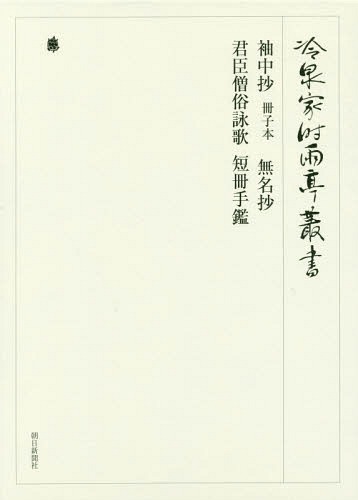 冷泉家時雨亭叢書
袖中抄 冊子本 無名抄
君臣僧俗詠歌 短冊手鑑
朝日新聞社